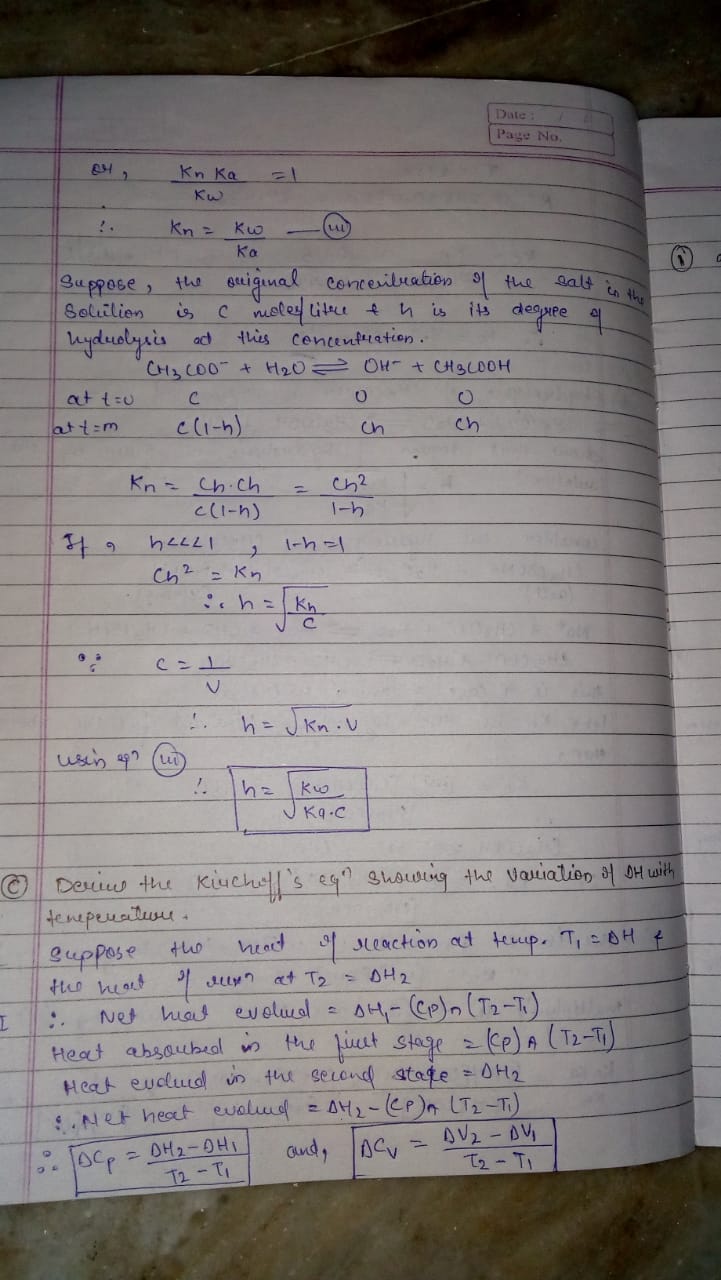 Date :
Page No.
or, Kn Ka / Kw = 1
∴ Kn = Kw / Ka — (iii)
Suppose, the original concentration of the salt in the
Solution is C moles/litre & h is its degree of
hydrolysis at this concentration.
CH3COO- + H2O ⇌ OH- + CH3COOH
at t=0 C 0 0
at t=m C(1-h) Ch Ch
Kn = Ch.Ch / C(1-h) = Ch2 / 1-h
If, h<<<1, 1-h=1
Ch2 = Kn
∴ h = √Kn / C
∵ C = 1 / V
∴ h = √Kn.V
using eqn (iii)
∴ h = √Kw / Ka.C
(C) Derive the Kirchoff's eqn showing the variation of DH with
temperature.
Suppose the heat of reaction at temp. T1 = DH &
the heat of rexn at T2 = DH2
∴ Net heat evolved = DH1 - (Cp)n (T2-T1)
Heat absorbed in the first stage = (Cp)A (T2-T1)
Heat evolved in the second stage = DH2
∴ Net heat evolved = DH2 - (CP)A (T2-T1)
∴ DCp = DH2-DH1 / T2-T1 and, DCv = DV2-DV1 / T2-T1
(i)